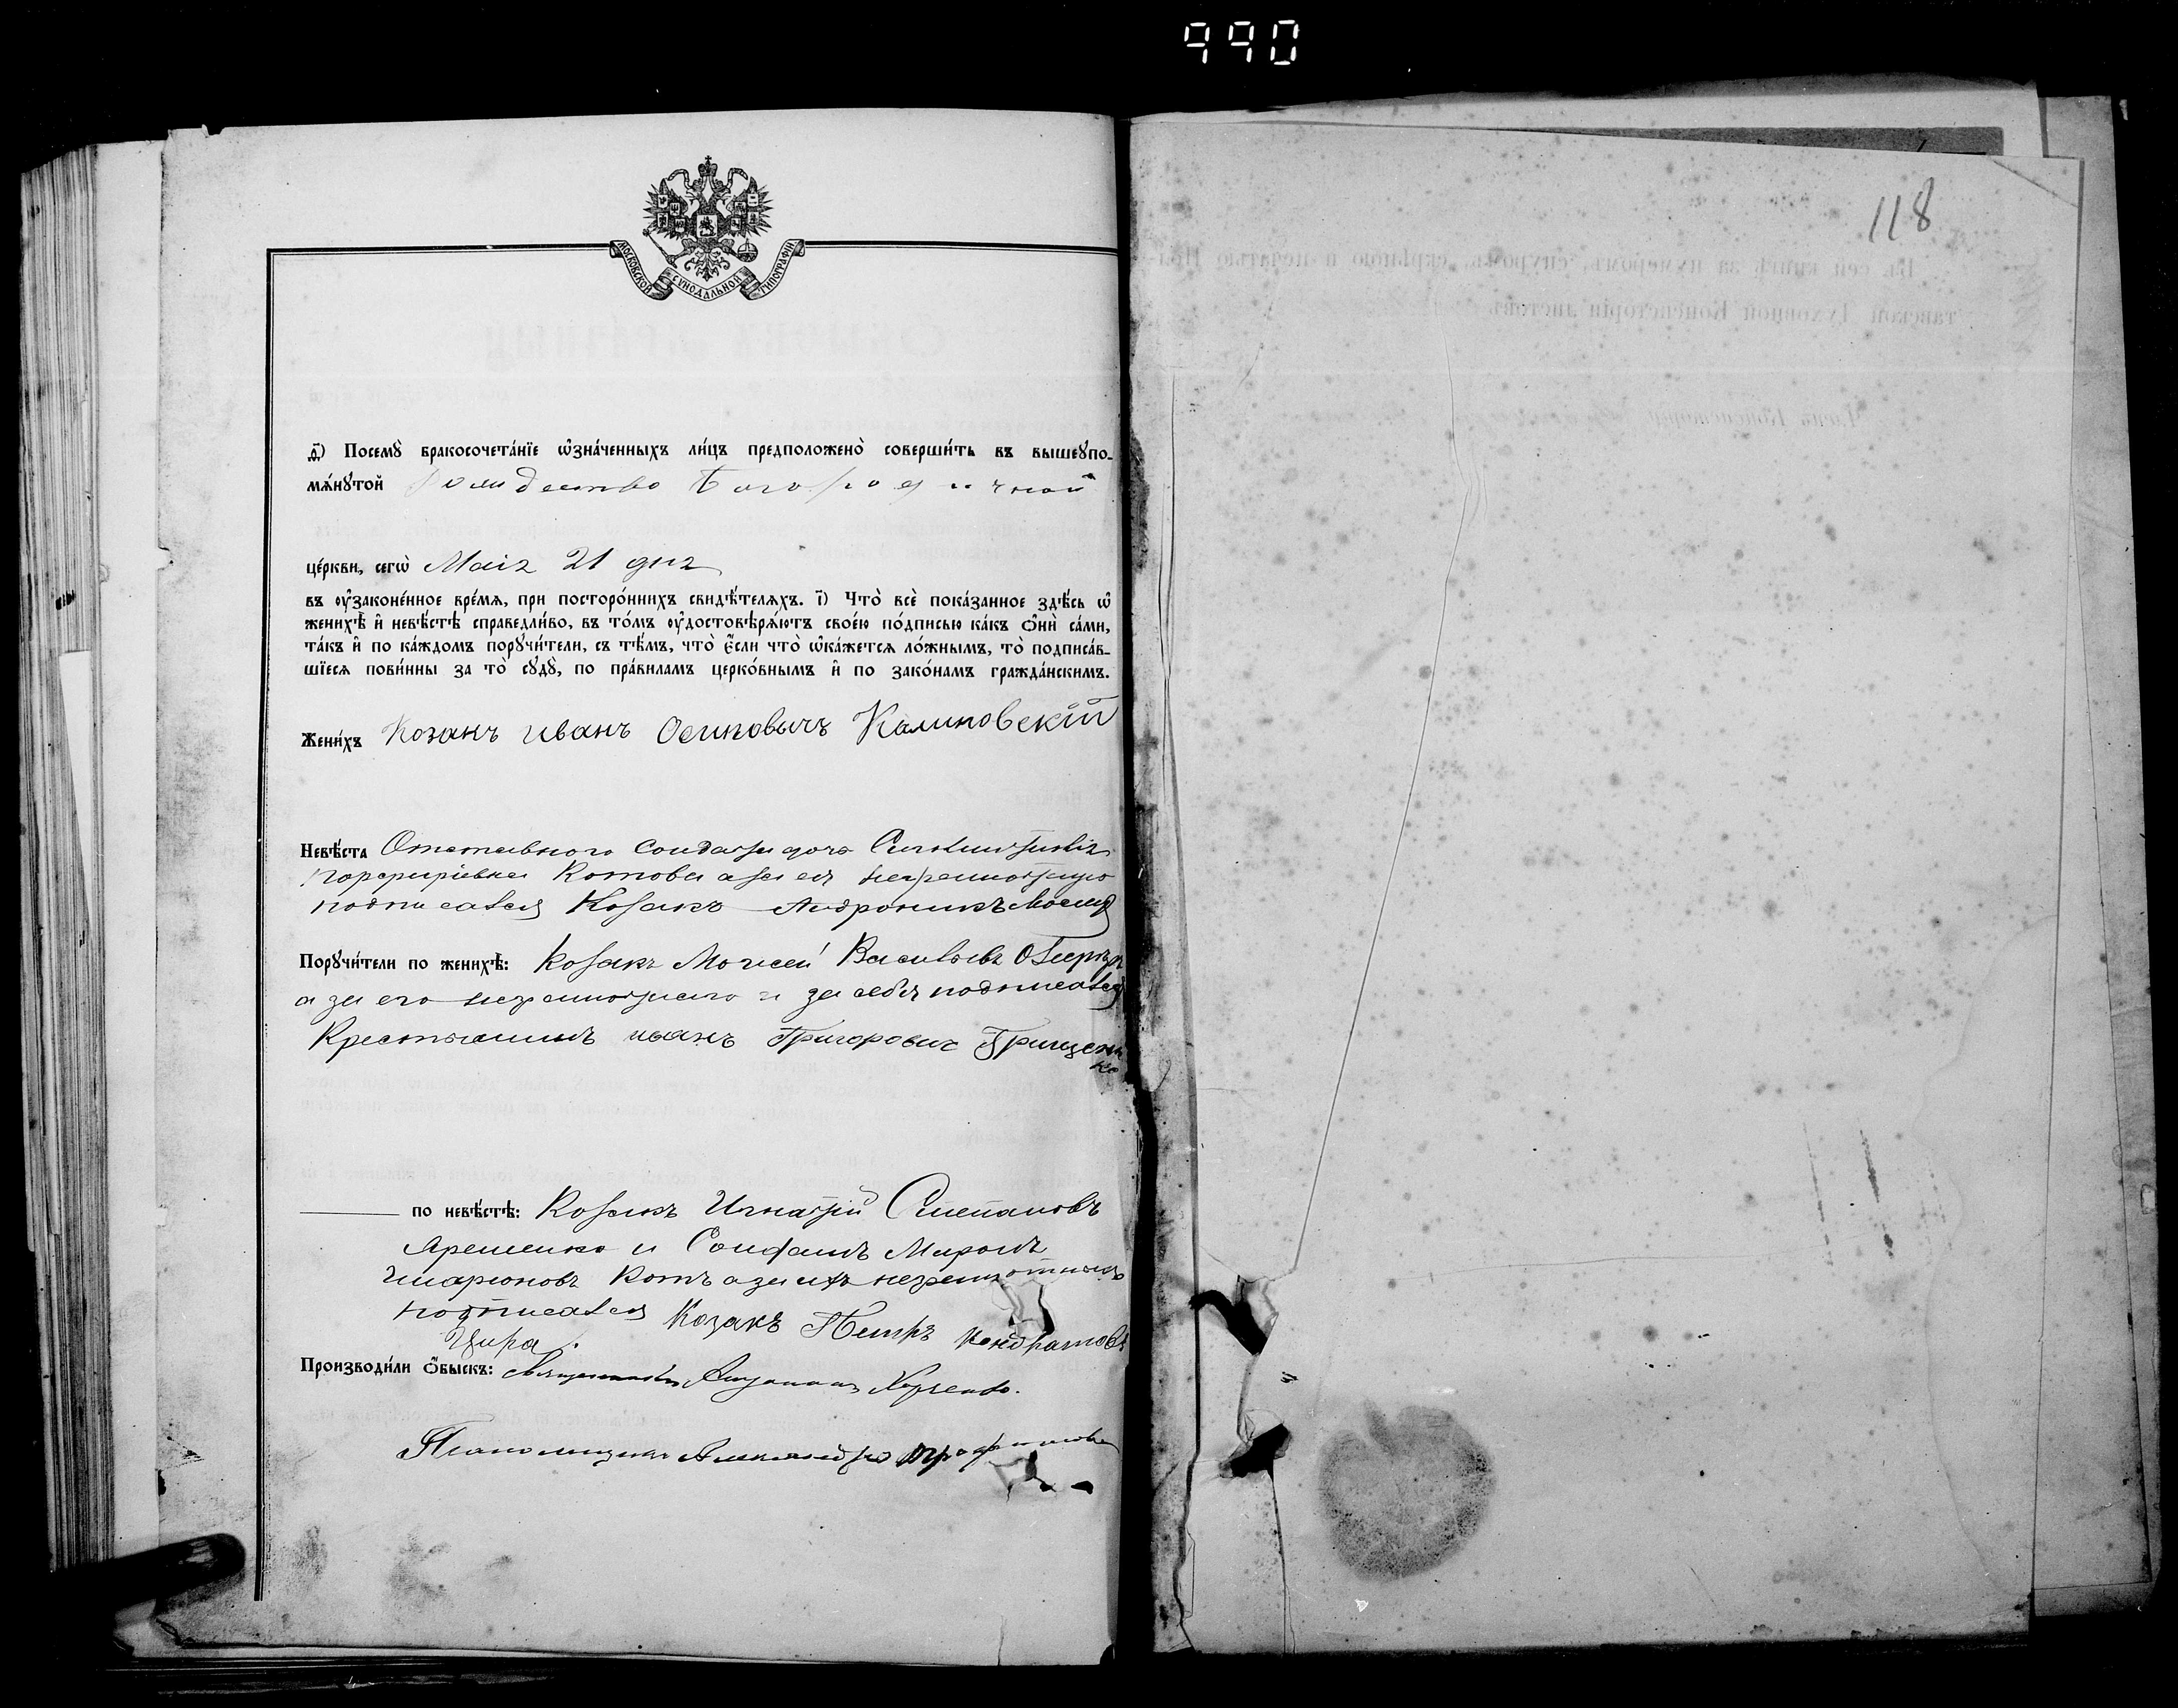 990
118
МОСКОВСКОЙ СѴНОДАЛЬНОЙ ТИПОГРАФІИ
д҃) Посемꙋ̀ бракосочета́нїе ѡ҆зна́ченныхъ ли́цъ предположено̀ соверши́ть въ вышеꙋпо-
мѧ́нꙋтой Рождество Богородичной
це́ркви, сегѡ̀ Маія 21 дня
въ ᲂу҆законе́нное вре́мѧ, при посторо́ннихъ свидѣ́телѧхъ. і҃) Что̀ всѐ пока́занное здѣ́сь ѡ҆
женихѣ̀ и҆ невѣ́стѣ справедли́во, въ то́мъ ᲂу҆достовѣрѧ́ютъ свое́ю по́дписью ка́къ ѻ҆нѝ са́ми,
та́къ и҆ по ка́ждомъ порꙋчи́тели, съ тѣ́мъ, что̀ є҆́сли что̀ ѡ҆ка́жетсѧ ло́жнымъ, то̀ подписа́в-
шїесѧ пови́нны за то̀ сꙋдꙋ̀, по пра́виламъ церко́внымъ и҆ по зако́намъ гражда́нскимъ.
Жени́хъ Козакъ иванъ Осиповичъ Калиновскій
Невѣ́ста Отставного солдата дочь
Порфиріевна Котова а за ея неграмотную
подписался Козакъ Андроникъ
Порꙋчи́тели по женихѣ̀: Козакъ Моисей Васильевъ
а за его неграмотнаго и за себя подписался
Крестьянинъ иванъ Григоровичъ Грищен
ко
по невѣ́стѣ: Козакъ Игнатій Степановъ
Яременко и Солдатъ Миронъ
Иларіоновъ Котъ а за ихъ неграмотныхъ
подписался Козакъ Петръ Кондратовъ
Цира.
Производи́ли ѻ҆́быскъ: Священникъ
Псаломщикъ Александръ